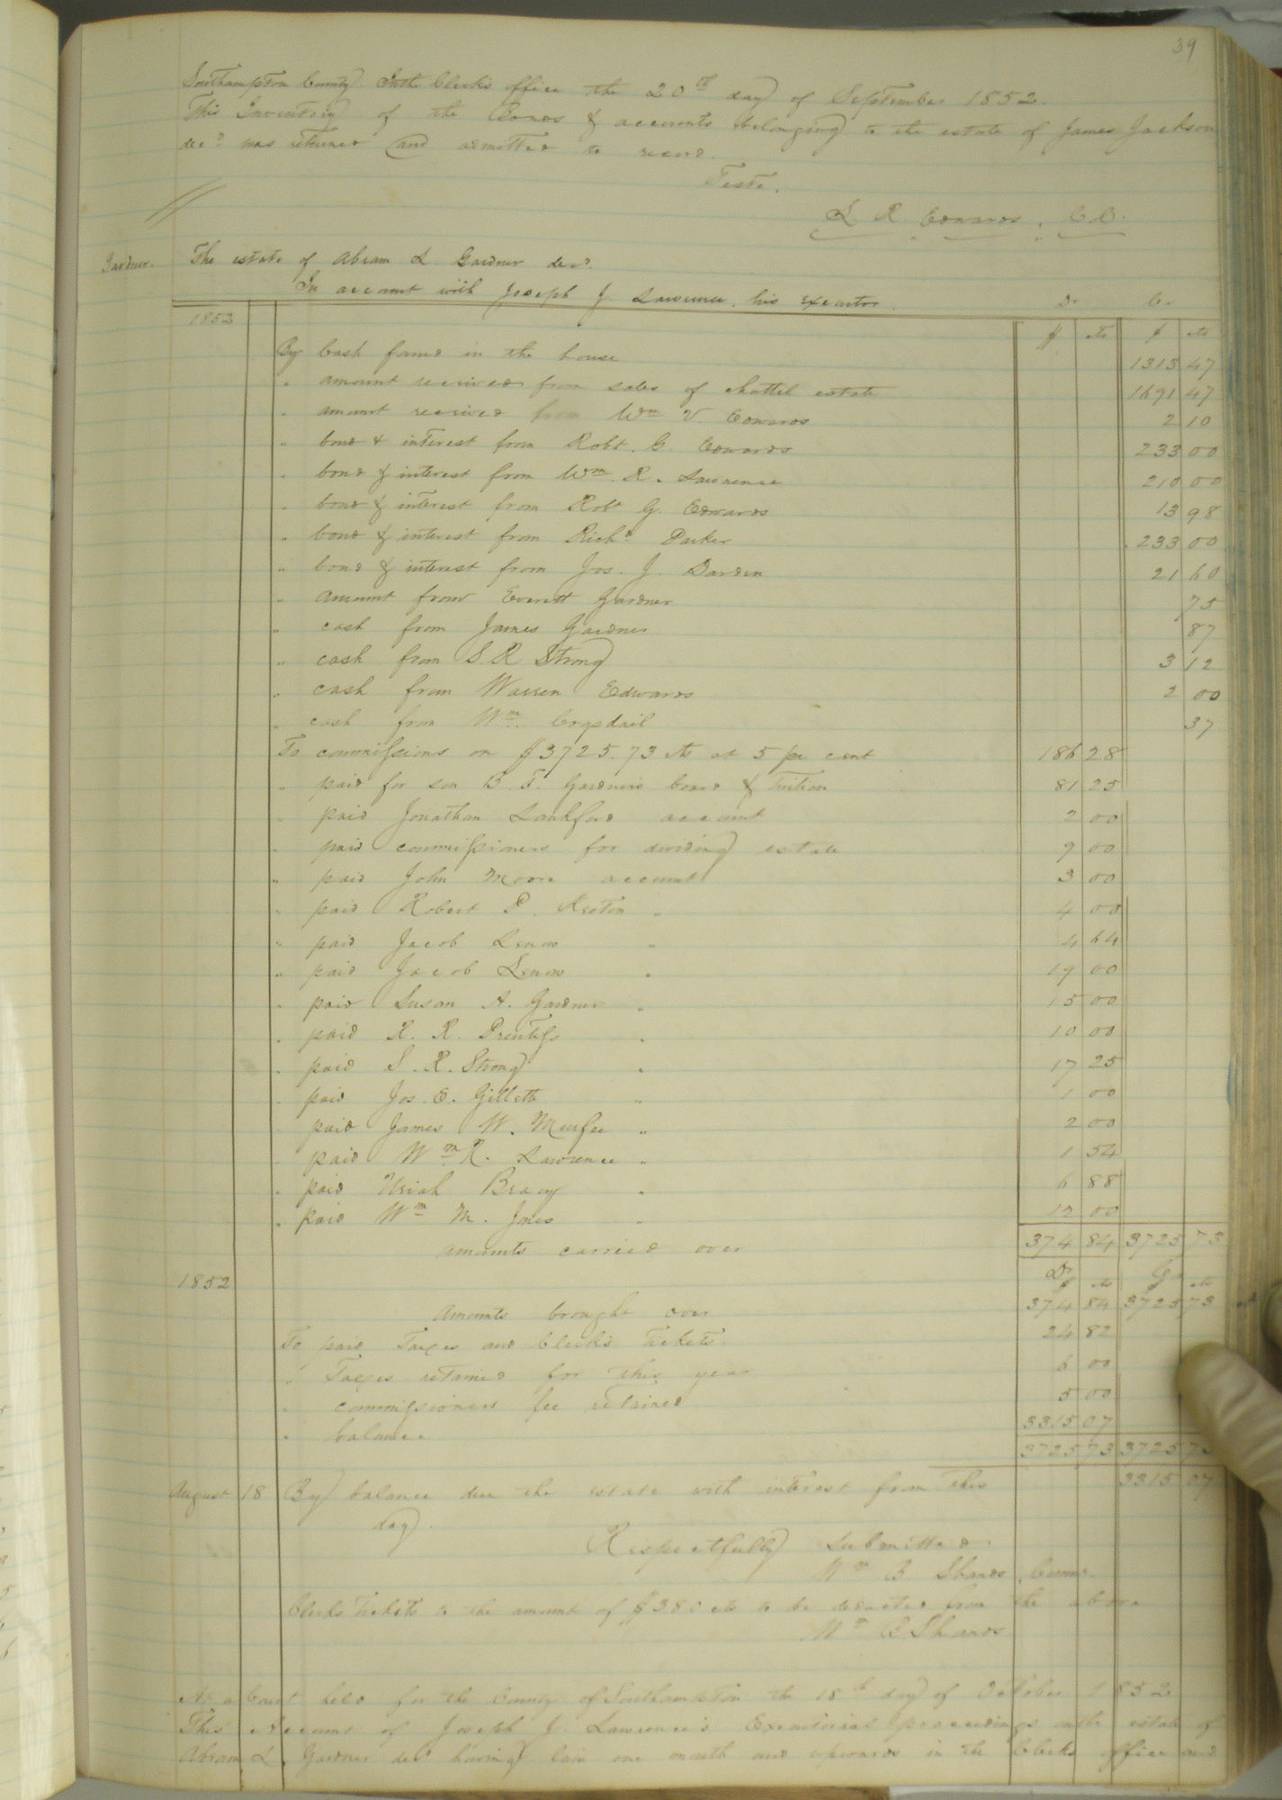 39
Southampton County In the Clerk's office the 20th day of September 1852.
This Inventory of the Bonds & accounts belonging to the estate of James Jackson
decd was returned and admitted to record.
Teste.
L R Edwards, C.C.
Gardner. The estate of Abram L Gardner decd.
In account with Joseph J. Lawrence, his executor. Dr Cr
1852 $ cts $ cts
By Cash found in the house 1313 47
" amount received from sales of chattel estate 1691 47
" amount received from Wm V Edwards 2 10
" bond & interest from Robt. G. Edwards 233 00
" bond & interest from Wm R. Lawrence 210 00
" bond & interest from Robt G. Edwards 13 98
" bond & interest from Richd Parker 233 00
" bond & interest from Jos. J. Darden 21 60
" amount from Everett Gardner 75
" cash from James Gardner 87
" cash from S R Strong 3 12
" cash from Warren Edwards 2 00
" cash from Wm Cogsdail 37
To commissions on $3725.73 cts at 5 per cent 186 28
" paid for son B. T. Gardner's board & tuition 81 25
" paid Jonathan Lankford account 2 00
" paid commissioners for dividing estate 9 00
" paid John Moore account 3 00
" paid Robert P. " 4 00
" paid Jacob Lenow " 4 64
" paid Jacob Lenow " 19 00
" paid Susan A. Gardner " 15 00
" paid R. R. Prentiss " 10 00
" paid S. R. Strong " 17 25
" paid Jos. E. Gillette " 1 00
" paid James W. Murfee " 2 00
" paid Wm R. Lawrence " 1 54
" paid Uriah Bracy " 6 88
" paid Wm M. Jones " 12 00
amounts carried over 374 84 3725 73
1852 Dr $ cts Cr cts
Amounts brought over 374 84 3725 73
To paid Taxes and Clerk's Tickets 24 82
" Taxes retained for this year 6 00
" commissioners fee retained 5 00
" balance 3315 07
3725 73 3725 73
August 18 By balance due the estate with interest from this 3315 07
day.
Respectfully submitted
Wm B Shands, Comr.
Clerks Tickets to the amount of cts to be deducted from the above
Wm B Shands
At a Court held for the County of Southampton the 18th day of October 1852
This Account of Joseph J. Lawrence's Executorial proceedings on the estate of
Abram L. Gardner decd having lain one month and upwards in the Clerks office and